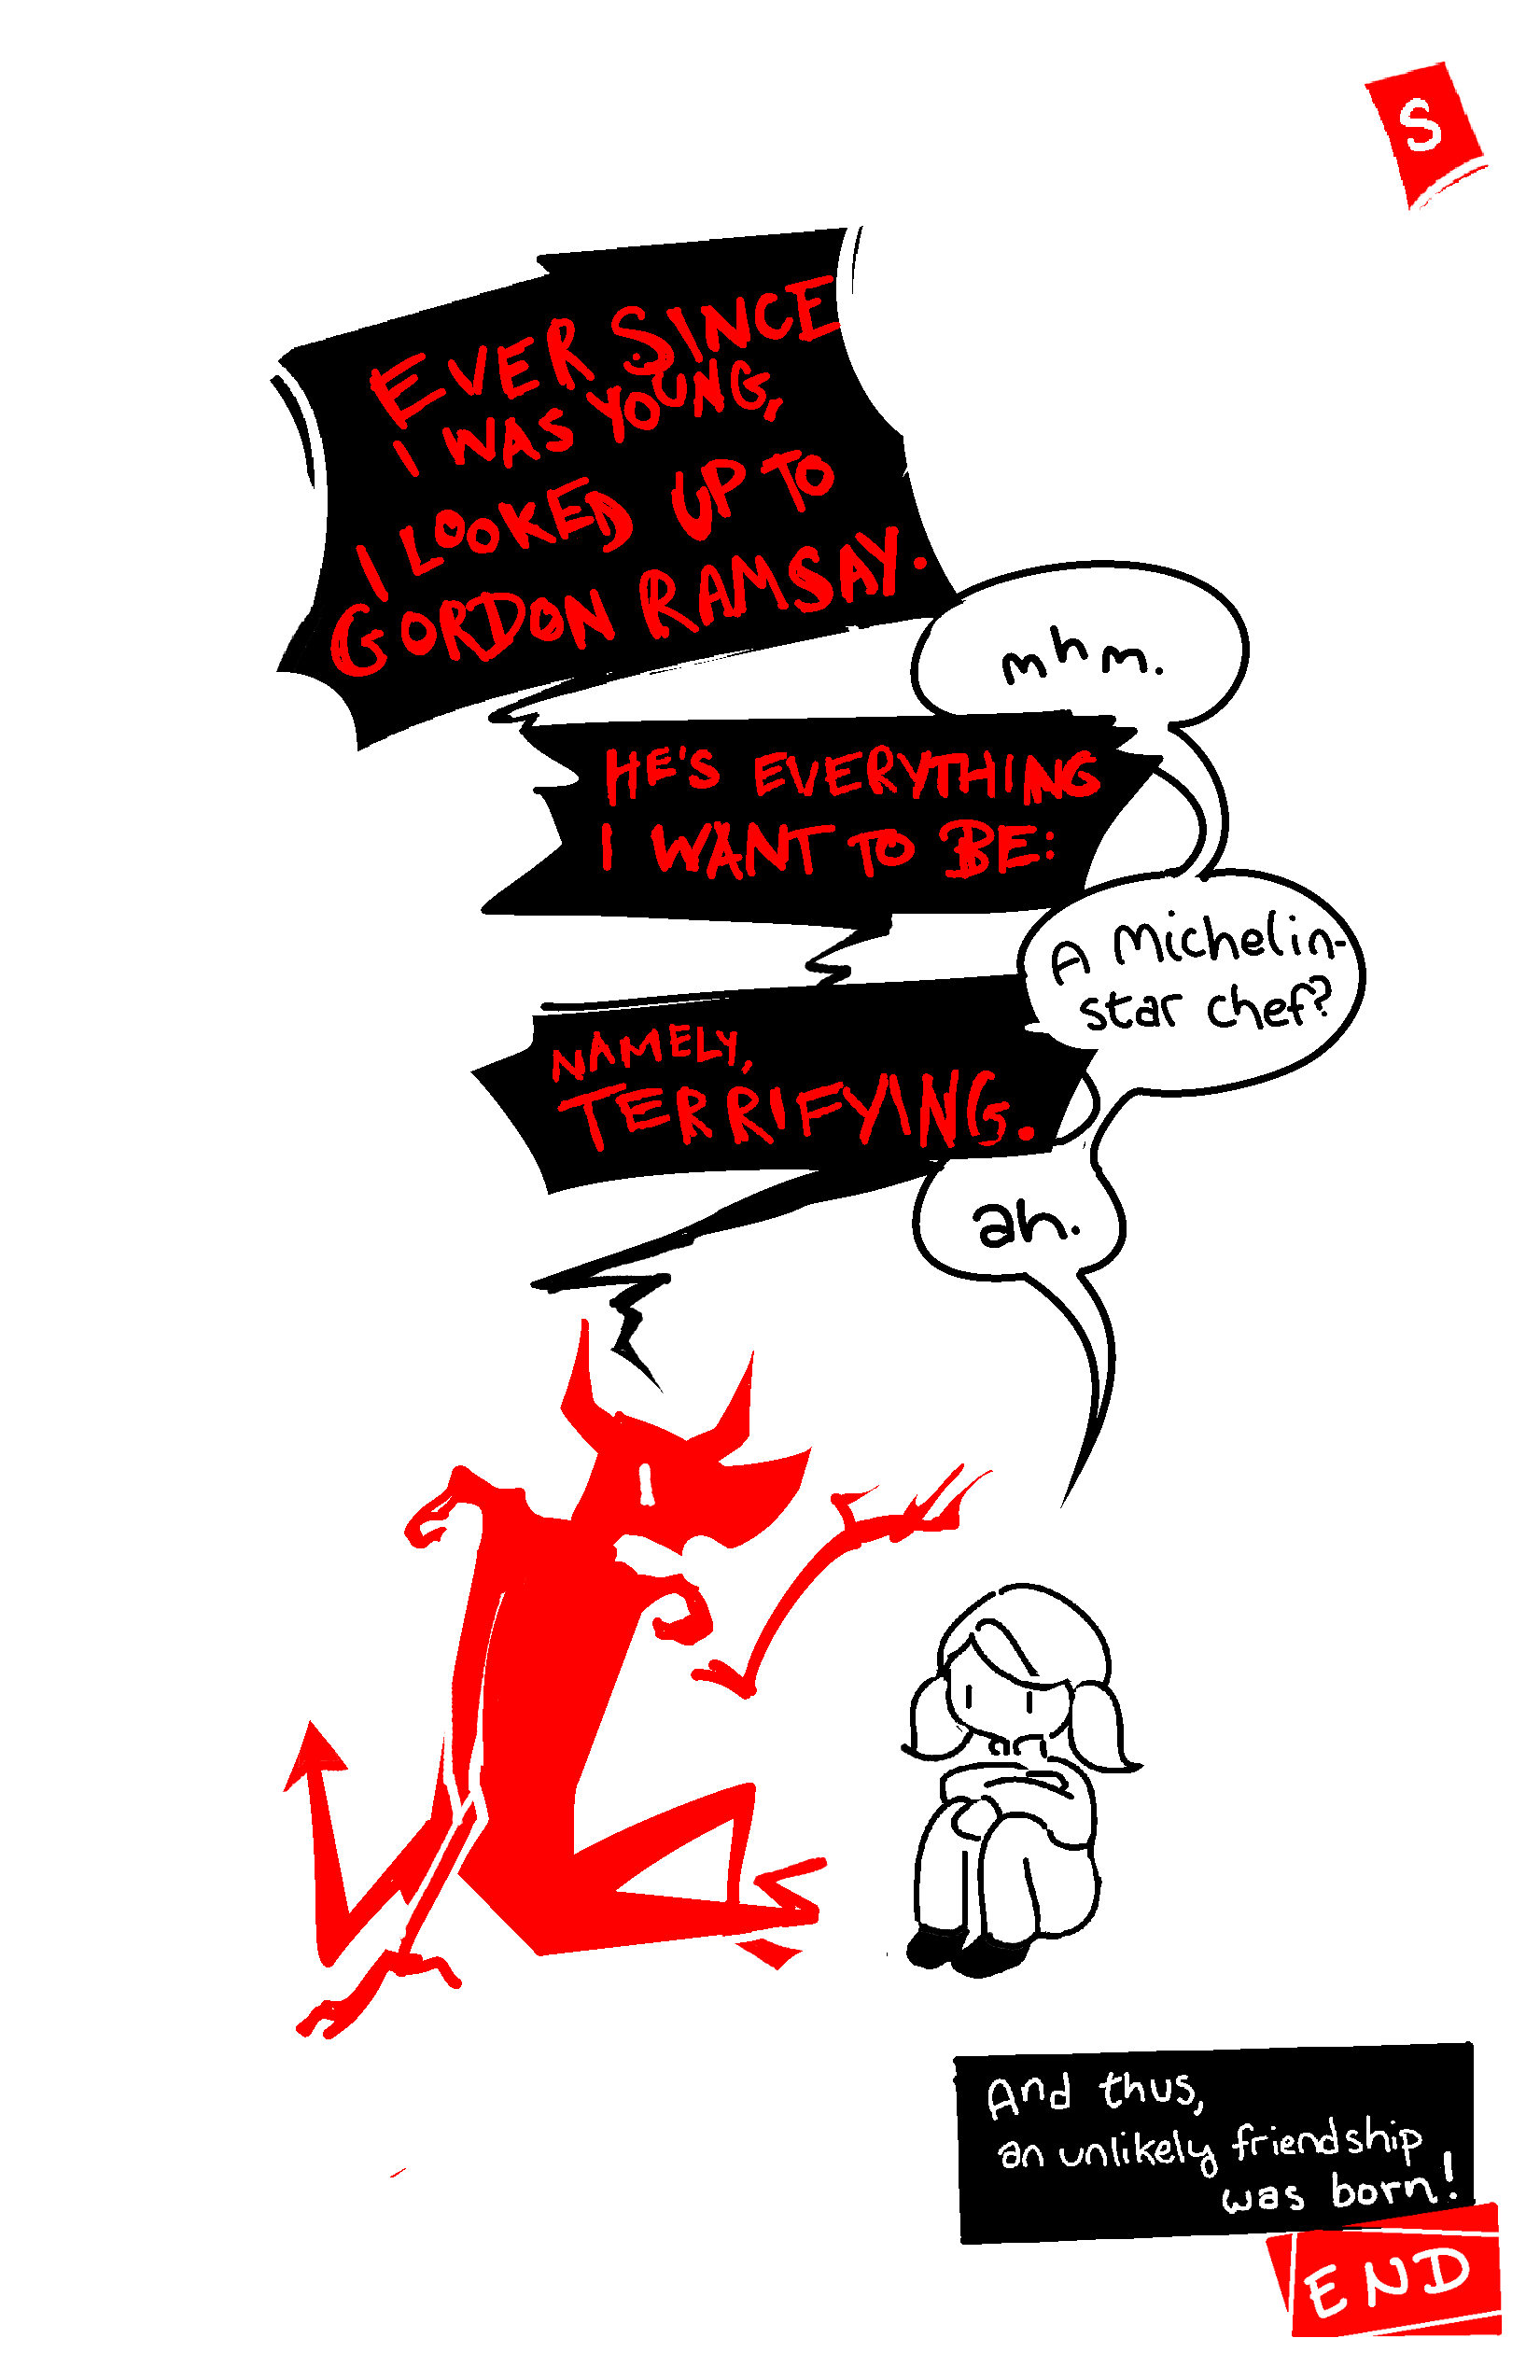 S
EVER SINCE
I WAS YOUNG,
I LOOKED UP TO
GORDON RAMSAY.
mhm.
HE'S EVERYTHING
I WANT TO BE:
A Michelin-
star chef?
NAMELY,
TERRIFYING.
ah.
And thus,
an unlikely friendship
was born!
END